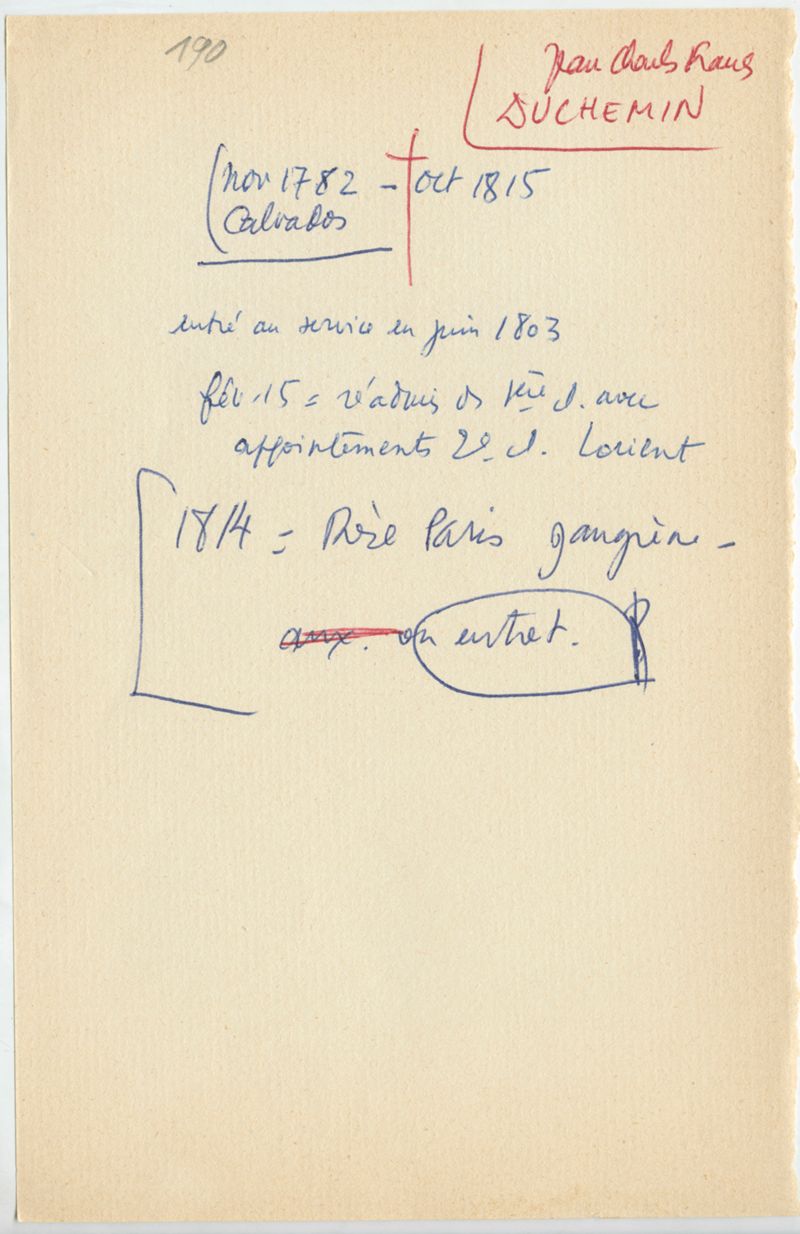 190
Jean Charles Franç
DUCHEMIN
nov 1782 - † oct 1815
Calvados
entré au service en juin 1803
fév. 15 = réadmis ds 1ère cl. avec
appointements 2e cl. Lorient
1814 = Thèse Paris gangrène -
aux. ou entret.